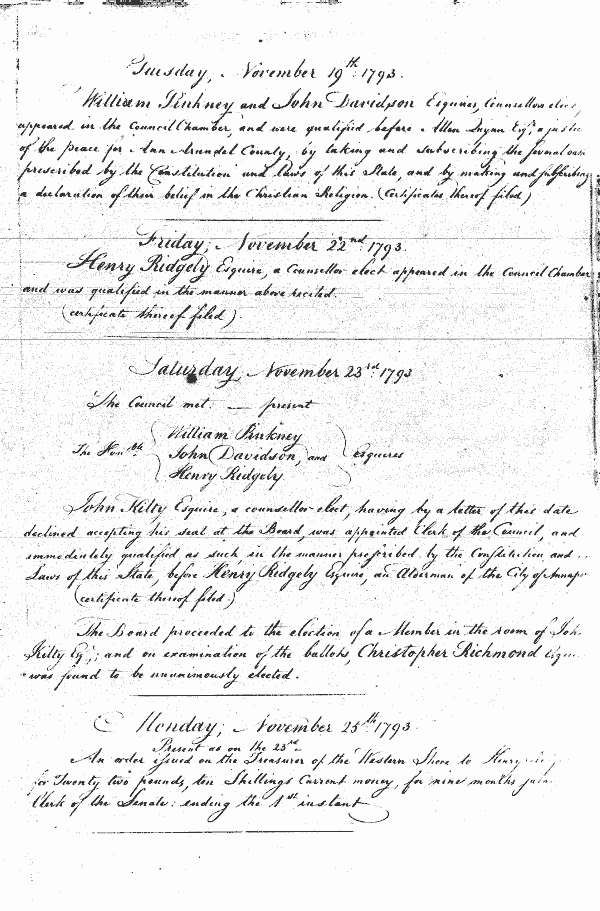 Tuesday, November 19th. 1793.
William Pinkney and John Davidson Esquires, Counsellors elect,
appeared in the Council Chamber, and were qualified before Allen Quynn Esqr, a justice
of the peace for Ann Arundel County, by taking and Subscribing the several oaths
prescribed by the Constitution and laws of this State, and by making and subscribing
a declaration of their belief in the Christian Religion. (Certificates thereof filed)
Friday, November 22nd 1793.
Henry Ridgely Esquire, a Counsellor elect appeared in the Council Chamber
and was qualified in the manner above recited.
(certificate thereof filed).
Saturday November 23rd. 1793
The Council met. — present
William Pinkney
The Honble. John Davidson, and Esquires
Henry Ridgely
John Kilty Esquire, a counsellor elect, having by a letter of this date
declined accepting his seat at the Board, was appointed Clerk of the Council, and
immediately qualified as such, in the manner prescribed by the Constitution and
Laws of this State, before Henry Ridgely Esquire, an Alderman of the City of Annapo
(certificate thereof filed.)
The Board proceeded to the election of a Member in the room of Joh
Kilty Esqr,; and on examination of the ballots, Christopher Richmond Esqui
was found to be unanimously elected.
Monday, November 25th 1793.
Present as on the 23rd
An order issued on the Treasurer of the Western Shore to Henry
for Twenty two pounds, ten Shillings Current money, for nine months
Clerk of the Senate: ending the 1st instant